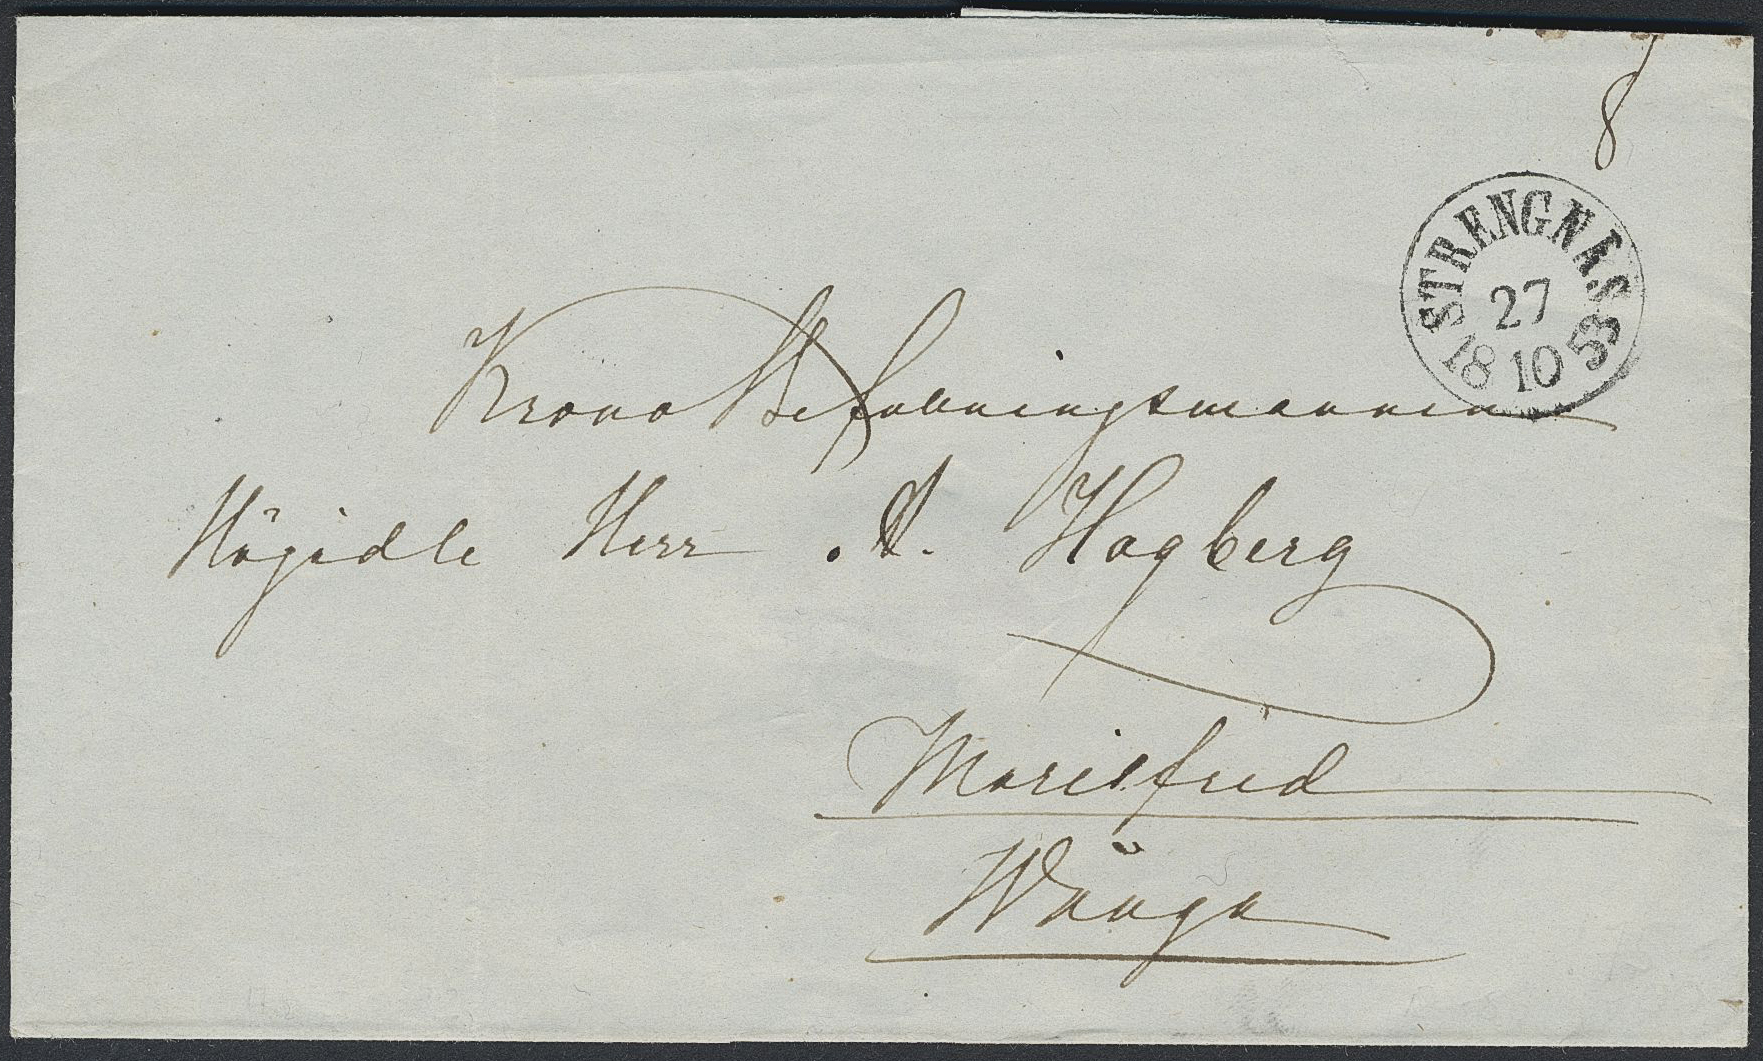 8
STRENGNÆS
27
18 10 53
Krono Befallningsmannen
Högädle Herr A. Hagberg
Mariefred
Wånga